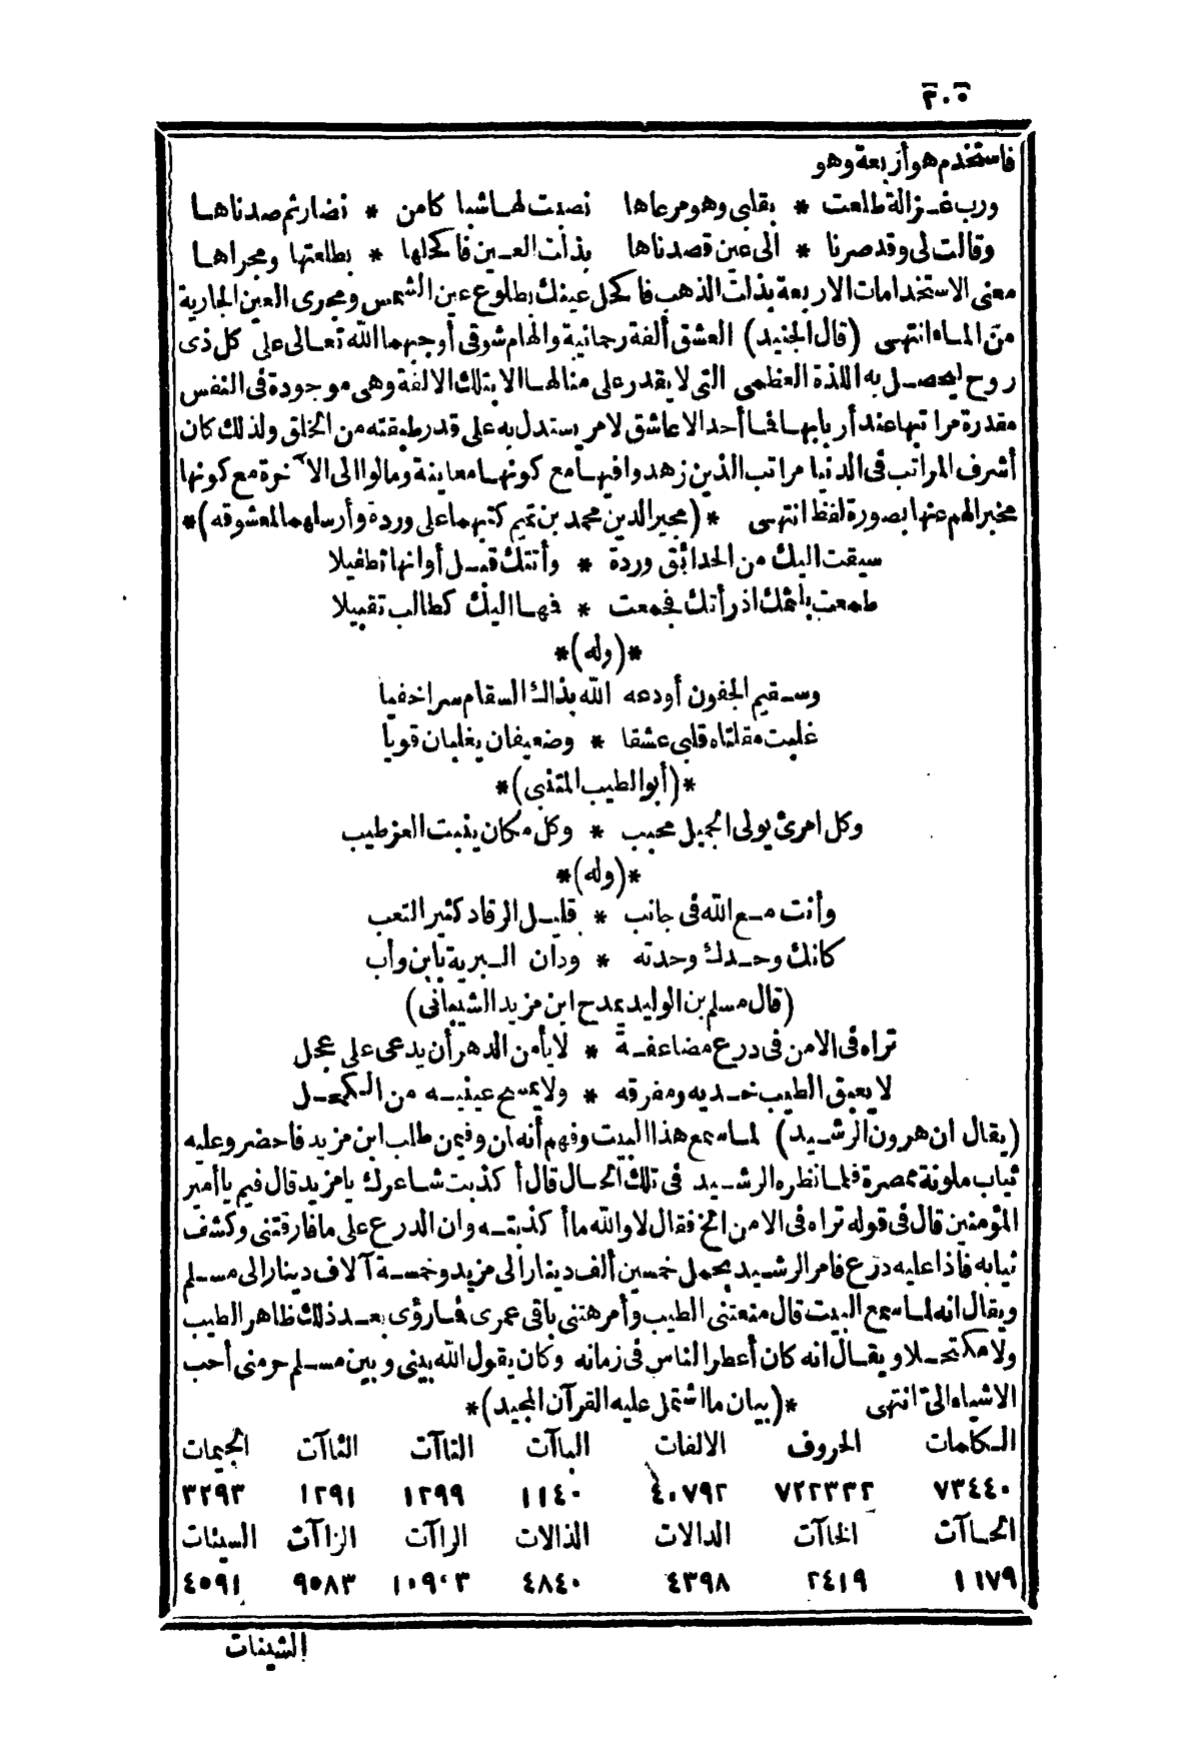 ٢٠٥
فاستخدم هو أربعة وهو
ورب غزالة طلعت * بقلبي وهو مرعاها نصبت لها شبا كامن * نضار ثم صدناها
وقالت لى وقد صرنا * الى عين قصدناها بذلت العين فاكحلها * بطلعتها ومجراها
معنى الاستخدامات الاربعة بذلت الذهب فاكحل عينك بطلوع عين الشمس ومجرى العين الجارية
من الماء انتهى (قال الجنيد) العشق ألفة رحمانية والهام شوقى أوجبهما الله تعالى على كل ذى
روح ليحصل به اللذة العظمى التى لا يقدر على مثالها الا بتلك الالفة وهى موجودة فى النفس
مقدرة مراتبها عند أربابها فما أحد الا عاشق لامر يستدل به على قدر طبقته من الخلق ولذلك كان
أشرف المراتب فى الدنيا مراتب الذين زهدوا فيها مع كونها معاينة ومالوا الى الآخرة مع كونها
مخبرا لهم عنها بصورة لفظ انتهى *(مجير الدين محمد بن تميم كتبهما على وردة وأرسلهما لمعشوقه)*
سيقت اليك من الحدائق وردة * وأتتك قبل أوانها تطفيلا
طمعت بلثمك اذ رأتك فجمعت * فمها اليك كطالب تقبيلا
*(وله)*
وسقيم الجفون أودعه الله بذاك السقام سرا خفيا
غلبت مقلتاه قلبى عشقا * وضعيفان يغلبان قويا
*(أبو الطيب المتنبى)*
وكل امرئ يولى الجميل محبب * وكل مكان ينبت العز طيب
*(وله)*
وأنت مع الله فى جانب * قليل الرقاد كثير التعب
كانك وحدك وحدته * ودان البرية بابن وأب
(قال مسلم بن الوليد يمدح ابن مزيد الشيبانى)
تراه فى الامن فى درع مضاعفة * لا يأمن الدهر أن يدعى على عجل
لا يعبق الطيب خديه ومفرقه * ولا يمسح عينيه من الكحل
(يقال ان هرون الرشيد) لما سمع هذا البيت وفهم أنه ان وفيمن طلب ابن مزيد فاحضر وعليه
ثياب ملونة ممصرة فلما نظره الرشيد فى تلك الحال قال أكذبت شاعرك يا مزيد قال فيم يا أمير
المؤمنين قال فى قوله تراه فى الامن الخ فقال لا والله ما أكذبته وان الدرع على ما فارقتنى وكشف
ثيابه فاذا عليه درع فامر الرشيد بحمل خمسين ألف دينار الى مزيد وخمسة آلاف دينار الى مسلم
ويقال انه لما سمع البيت قال منعتنى الطيب وأمرهتنى باقى عمرى فما رؤى بعد ذلك ظاهر الطيب
ولا مكتحلا ويقال انه كان أعطر الناس فى زمانه وكان يقول الله بينى وبين مسلم حرمنى أحب
الاشياء الى انتهى *(بيان ما اشتمل عليه القرآن المجيد)*
الكلمات الحروف الالفات الباآت التاآت الثاآت الجيمات
٧٣٤٤٠ ٧٢٢٣٣٢ ٤٠٧٩٢ ١١٤٠ ١٢٩٩ ١٢٩١ ٣٢٩٣
الحاآت الخاآت الدالات الذالات الراآت الزاآت السينات
١١٧٩ ٢٤١٩ ٤٣٩٨ ٤٨٤٠ ١٠٩٠٣ ٩٥٨٣ ٤٥٩١
الشينات